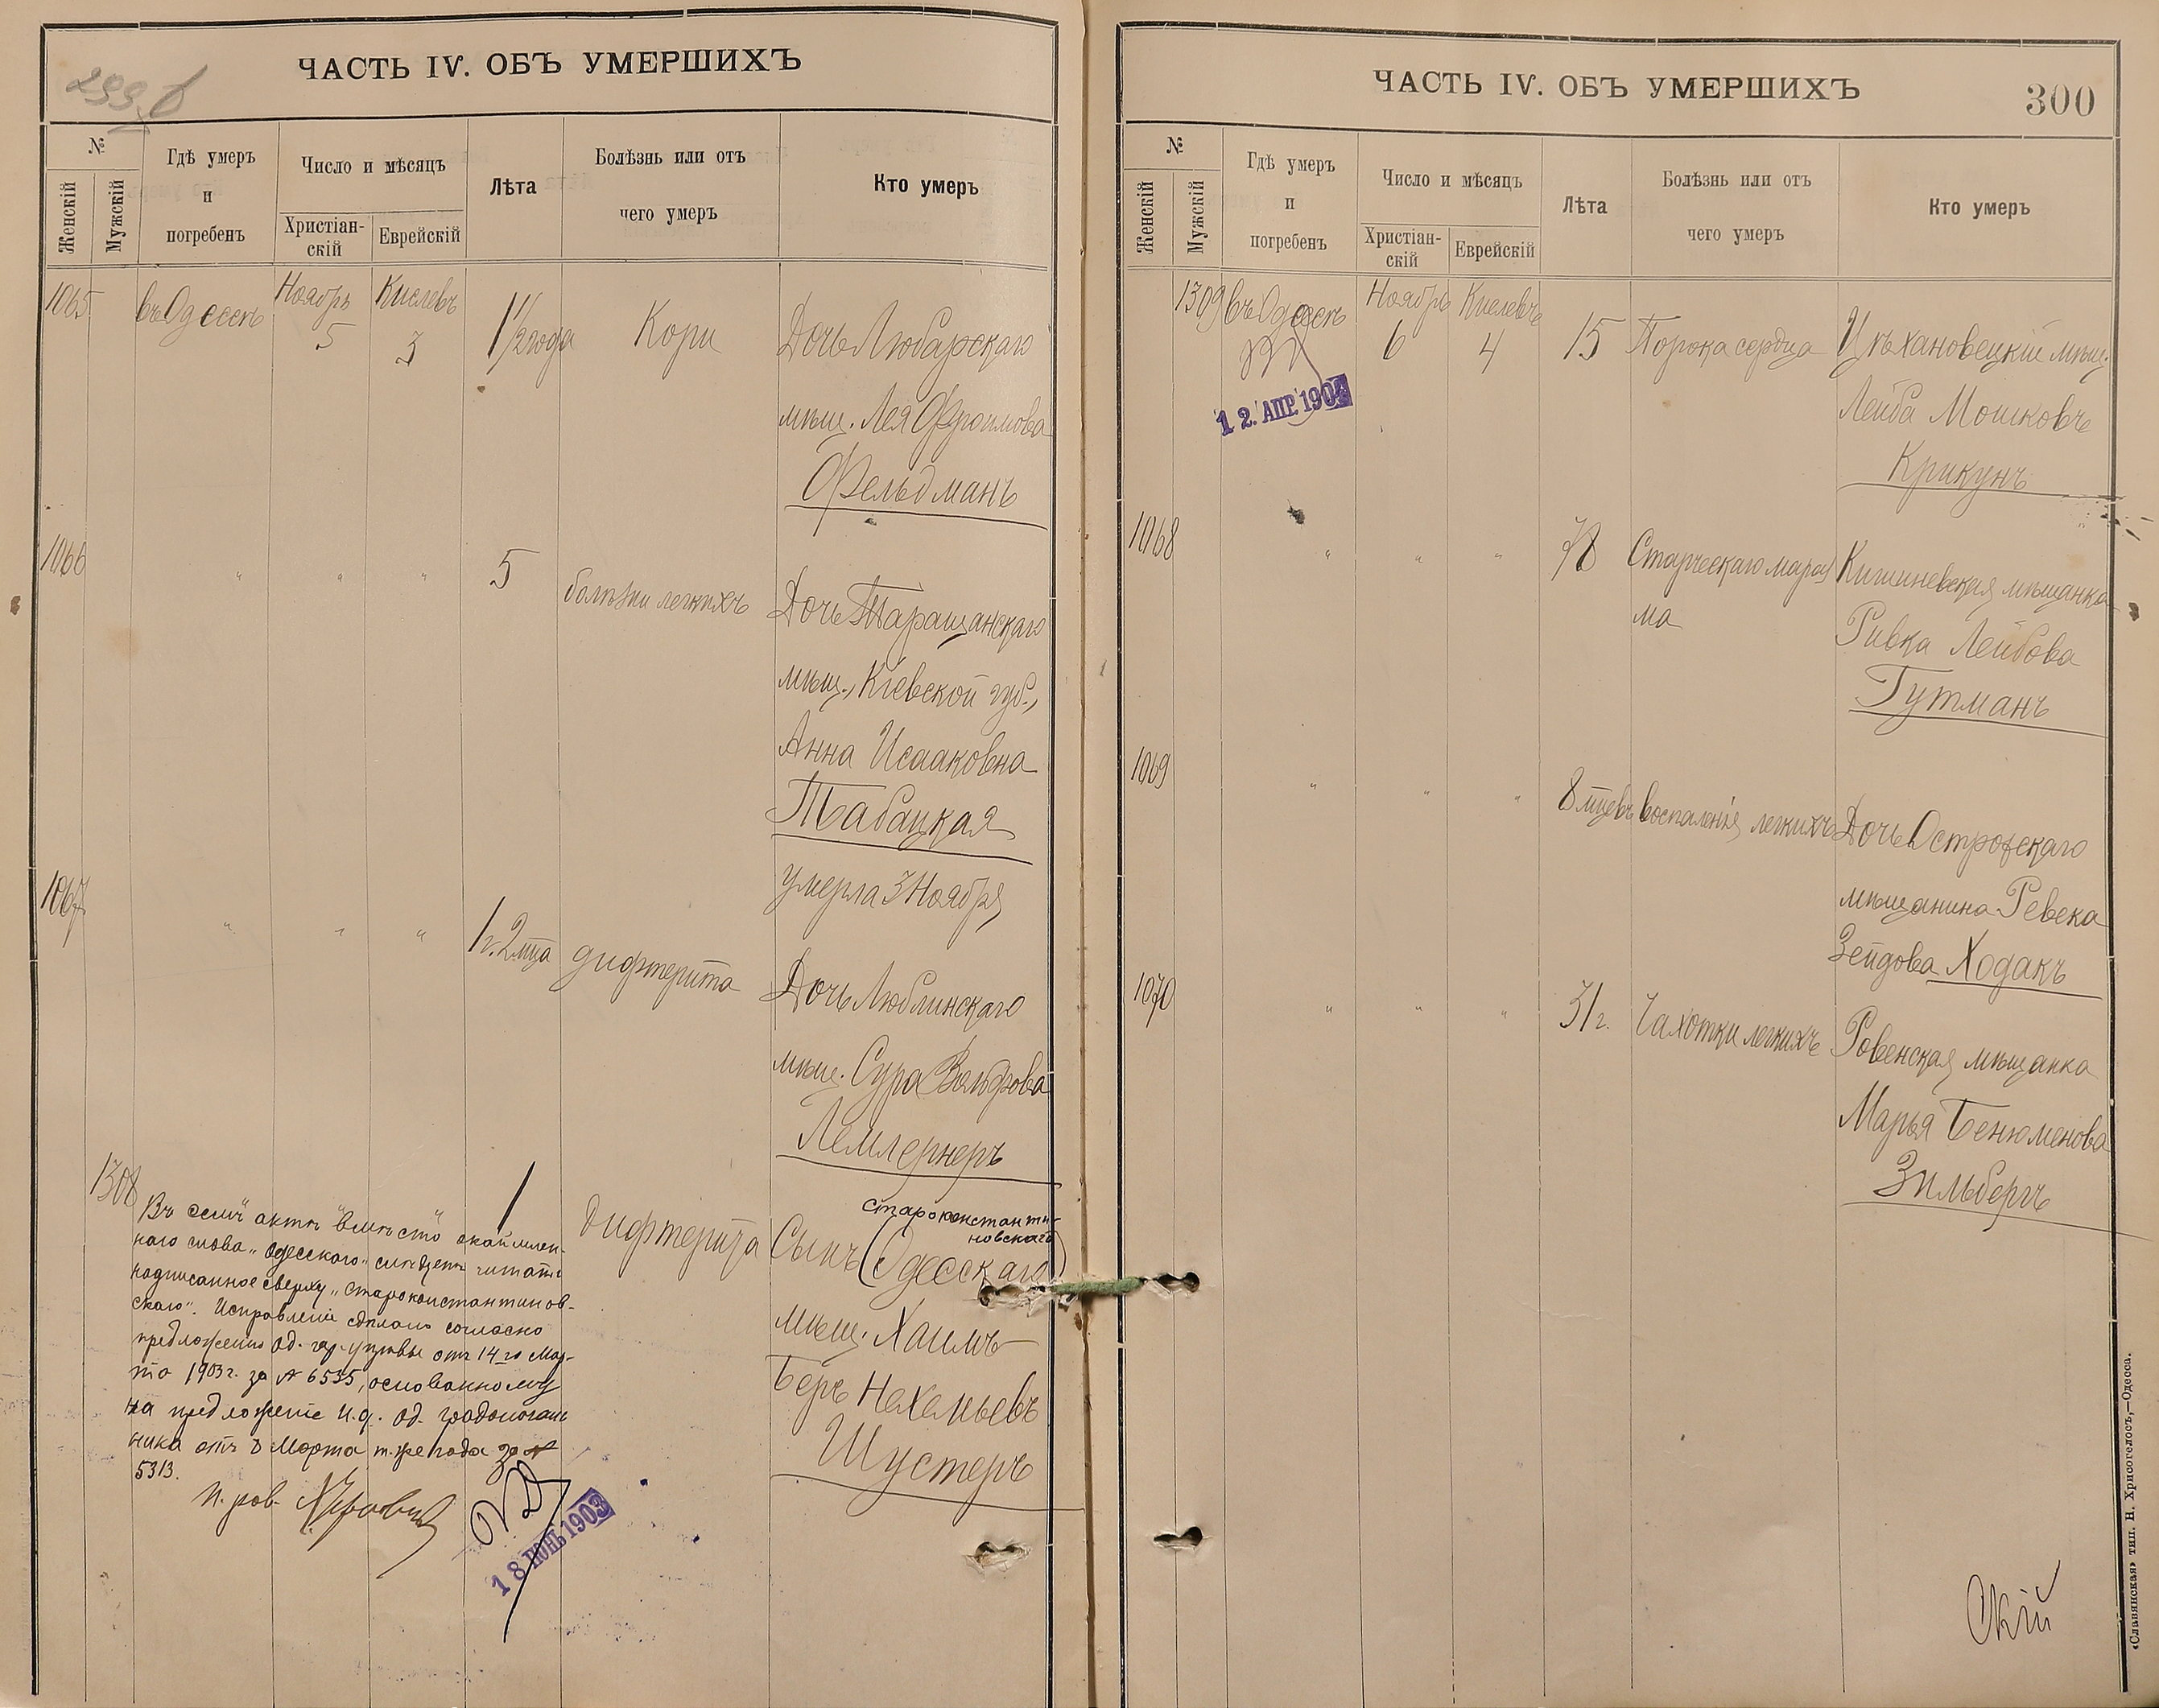 299 б
ЧАСТЬ IV. ОБЪ УМЕРШИХЪ
№
Женскій
Мужскій
Гдѣ умеръ
и
погребенъ
Число и мѣсяцъ
Христіан-
скій
Еврейскій
Лѣта
Болѣзнь или отъ
чего умеръ
Кто умеръ
1065 въ Одессѣ Ноябрь 5 Кислевъ 3 1 1/2 года Кори Дочь Любарскаго
мѣщ. Лея Фроимова
Фельдманъ
1066 " " " 5 болѣзни легкихъ Дочь Таращанскаго
мѣщ., Кіевской губ.,
Анна Исааковна
Табацкая
умерла 3 Ноября
1067 " " " 1 г. 2 мца дифтерита Дочь Люблинскаго
мѣщ. Сура Вольфова
Лемлернеръ
1308 1 дифтерита Сынъ (Одесскаго)
Староконстанти-
новскаго
мѣщ. Хаимъ
Беръ Нехемьевъ
Шустеръ
Въ семъ актѣ вмѣсто окаймлен-
наго слова „Одесскаго" слѣдуетъ читать
надписанное сверху „Староконстантинов-
скаго". Исправленіе сдѣлано согласно
предложенію Од. гор. управы отъ 14го Мар-
та 1903 г. за № 6535, основанному
на предложеніе И.д. Од. градоначаль
ника отъ 8 Марта т. же года за №
5313.
И. рав.
18 ІЮНЬ 1903
ЧАСТЬ IV. ОБЪ УМЕРШИХЪ
300
№
Женскій
Мужскій
Гдѣ умеръ
и
погребенъ
Число и мѣсяцъ
Христіан-
скій
Еврейскій
Лѣта
Болѣзнь или отъ
чего умеръ
Кто умеръ
1309 въ Одессѣ Ноябрь 6 Кислевъ 4 15 Порока сердца Цѣхановецкій мѣщ.
Лейба Мошковъ
Крикунъ
12. АПР. 1904
1068 " " " 78 Старческаго мараз
ма
Кишиневская мѣщанка
Ривка Лейбова
Гутманъ
1069 " " " 8 мцевъ воспаленія легкихъ Дочь Острожскаго
мѣщанина Ревека
Зейдова Ходакъ
1070 " " " 31 г. Чахотки легкихъ Ровенская мѣщанка
Марья Бенюменова
Зильберъ
Скій
«Славянская» тип. Н. Хрисогелосъ,—Одесса.